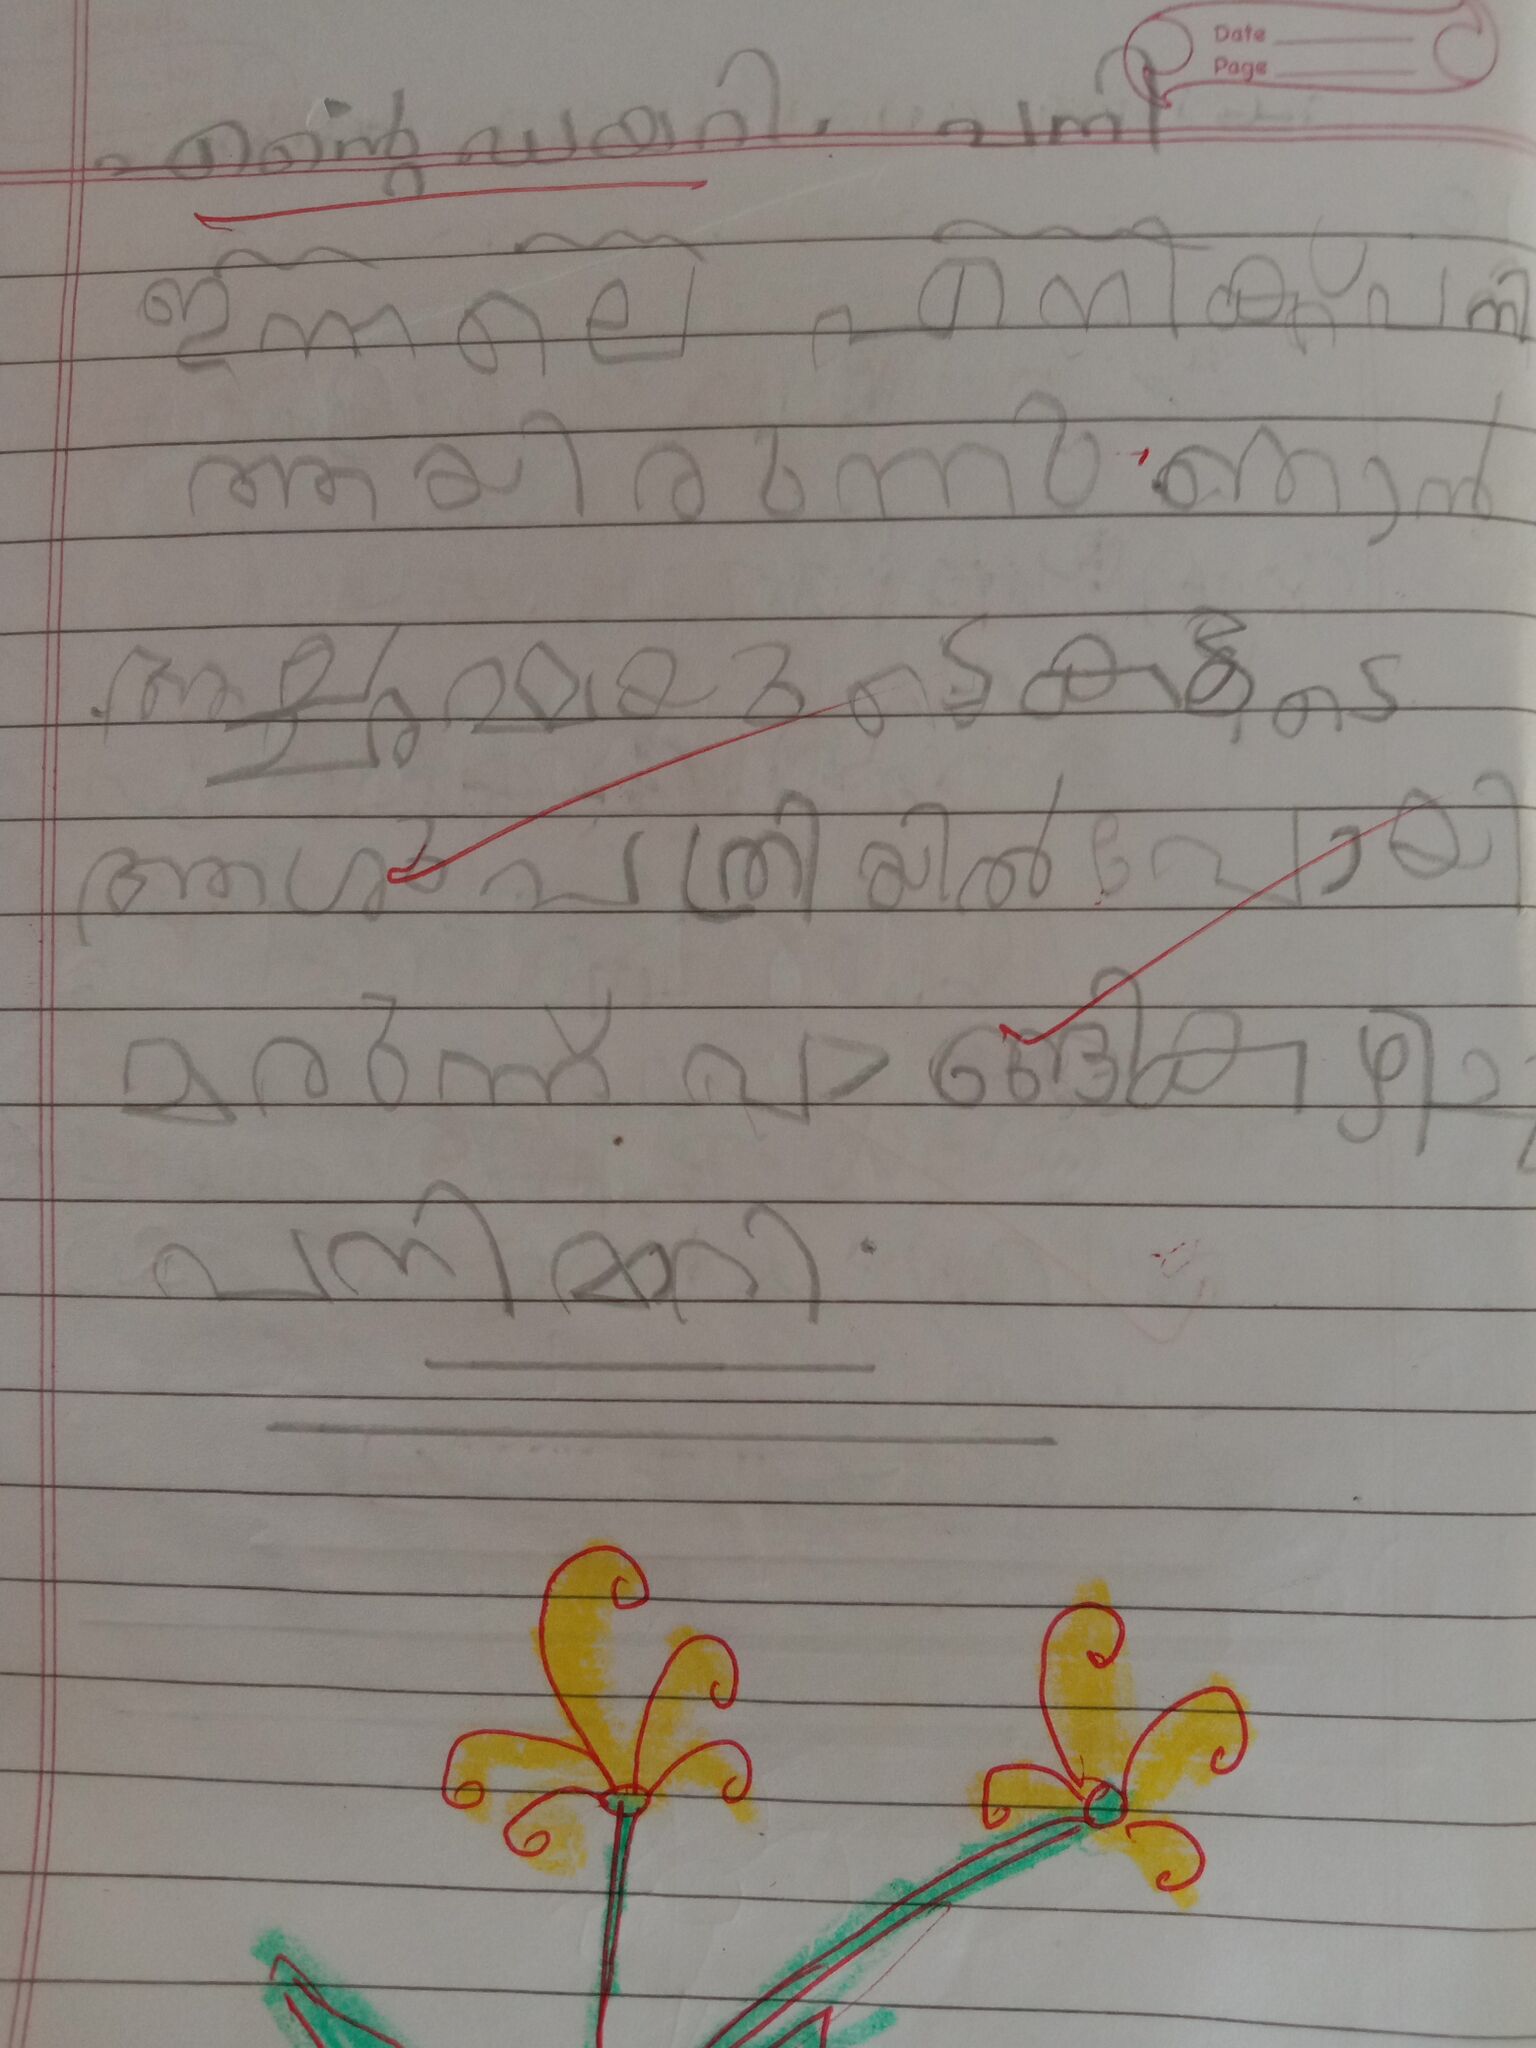 Date
Page
എന്റെ ഡയറി. പനി
ഇന്നലെ എനിക്ക് പനി
ആയിരുന്നു. ഞാൻ
അച്ഛന്റെയും
ആശുപത്രിയിൽ പോയി
മരുന്ന് വാങ്ങി കഴിച്ചു
പനി മാറി.